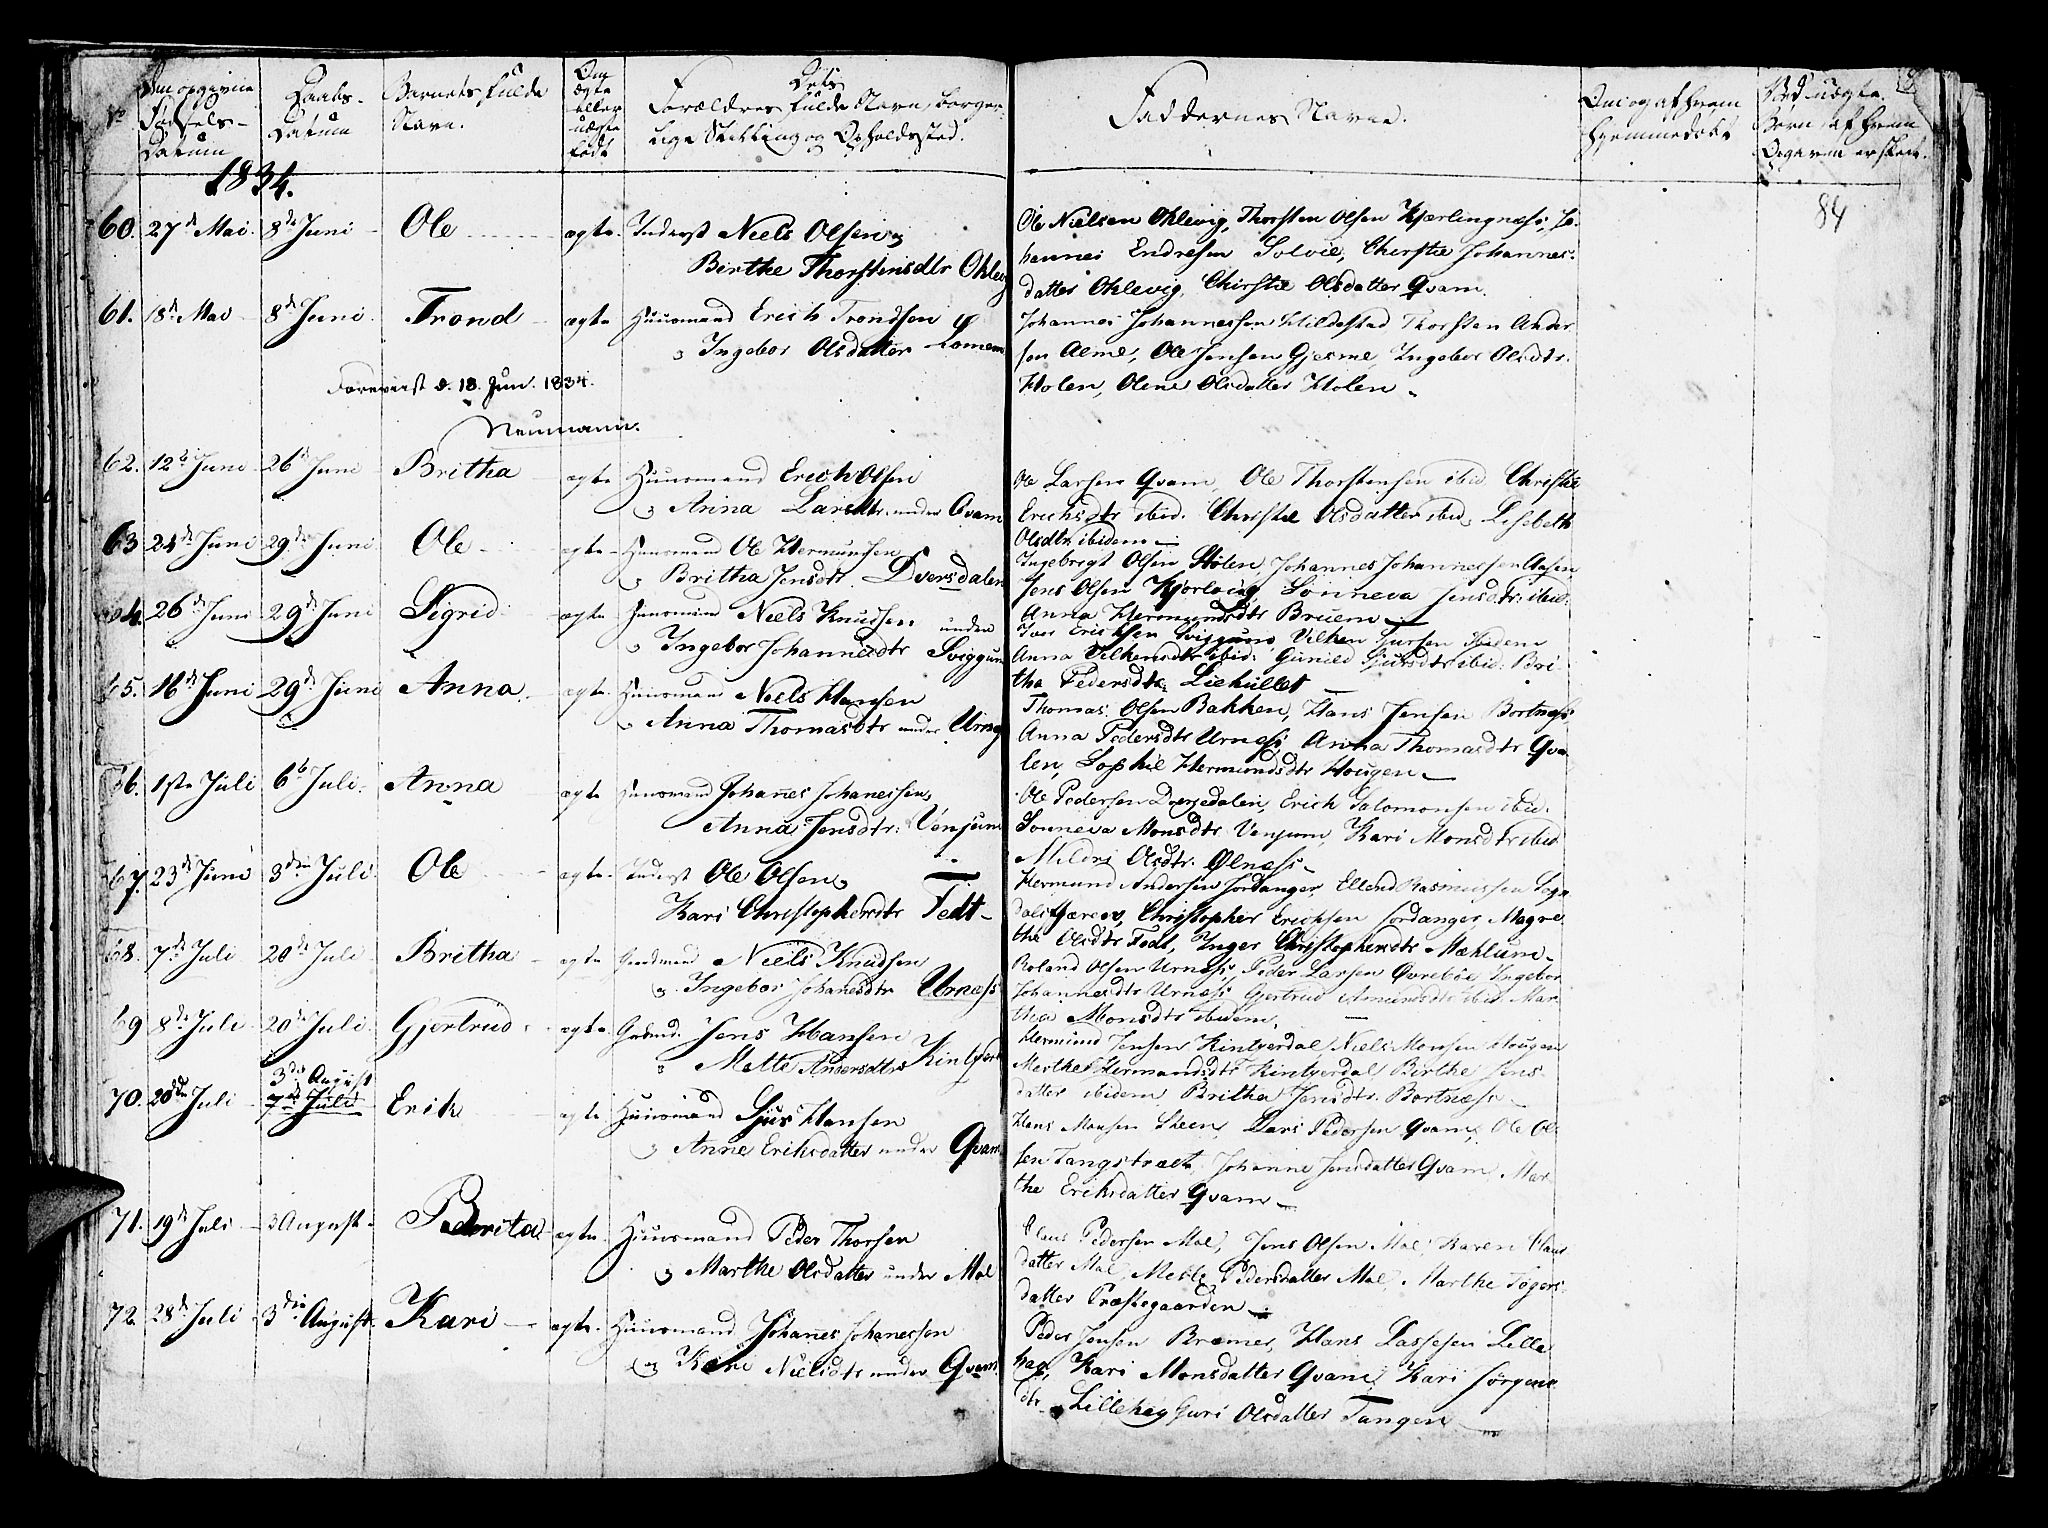 No
Den opgivne Fødsels-Datum
Daabs-Datum
Barnets fulde Navn.
Om ægte eller uægte født
Dets Forældres fulde Navn, borgerlige Stilling og Opholdssted.
Faddernes Navne.
Om og af hvem hjemmedøbt
Ved uægte Børn af hvem Opgaven er skeet.
84
1834.
60. 27d Mai 8de Juni Ole ægte Inderst Niels Olsen
Birthe Thorstensdtr Ohlevig
Ole Nielsen Ohlevig, Thorsten Olsen Kjærlingnæss, Jo-
hannes Endresen Solvie, Cherstie Johannes-
datter Ohlevig, Chirstie Olsdatter Qvam.
61. 18d Mai 8de Juni Trond ægte Huusmand Erich Trondsen
Ingebor Olsdatter Lomem
Johannes Johannessen Hildestad Thorsten Ander
sen Alme, Ole Jensen Gjesme, Ingebor Olsdtr.
Holen, Olene Olsdatter Holen
Foreviist d. 18. Jun. 1834.
Neumann.
62. 12te Juni 26d Juni Britha ægte Huusmand Erich Olsen
Anna Larsdtr. under Qvam
Ole Larsen Qvam, Ole Thorstensen ibid Christie
Erichsdtr ibid. Christie Olsdatter ibid, Lisebeth
Olsdtr ibidem
63 24de Juni 29de Juni Ole ægte Huusmand Ole Hermundsen
Britha Jensdtr. Dversdalen
Ingebrigt Olsen Holen, Johannes Johannessen Aasen,
Jens Olsen Kjørlvig, Sønneva Jensdtr: ibid:
Anna Hermundsdtr Bruem
64. 26de Juni 29de Juni Sigrid ægte Huusmand Niels Knudsen under
Ingebor Johannesdtr Sviggum
Iver Erichsen Sviggum, Vilken Sjursen ibidem
Anna Vilkensdtr ibid: Gunild Sjursdtr ibid: Bri
tha Pedersdtr Liehullet
65. 16de Juni 29de Juni Anna ægte Huusmand Niels Hansen
Anna Thomasdtr under Urnes
Thomas Olsen Bakken, Hans Jensen Bortnes
Anna Pedersdtr Urness, Anna Thomasdtr Qva
len, Sophie Hermundsdtr Hougen
66. 1ste Juli 6te Juli Anna ægte Huusmand Johanes Johanessen,
Anna Jensdtr: Venjum
Ole Pedersen Dversdalen, Erich Salomonsen ibid.
Sønneva Monsdtr Venjum, Kari Monsdtr ibid
Mildri Olsdtr. Ølness
67. 23de Juni 3die Juli Ole ægte Inderst Ole Olsen
Kari Christophersdtr Fedt
Hermund Andersen Jordanger, Ellend Rasmussen Sogn
dalsfjæren, Christopher Erichsen Jordanger, Magre
the Olsdtr Fedt, Inger Christophersdtr Mæhlum
68. 7de Juli 20de Juli Britha ægte Gaardmand Niels Knudsen
Ingebor Johanesdtr Urness
Roland Olsen Urness, Peder Larsen Øvrebøe Ingebor
Johannesdtr Urness Gjertrud Amundsdtr ibid Mar
tha Monsdtr ibidem.
69 8de Juli 20de Juli Gjertrud ægte Grbmd: Jens Hansen
Mette Andersdtr Kinserdal
Hermund Jensen Kinserdal, Niels Monsen Hougen
Merthe Hermandsdtr Kinserdal, Birthe Jens-
datter ibidem Britha Jensdtr. Bortness
70. 20de Juli 3die August
7de Juli Erik ægte Huusmand Sjur Hansen
Anne Eriksdatter under Qvam
Hans Monsen Steen, Lars Pedersen Qvam, Ole Ol
sen Tangstræt, Johanne Jensdatter Qvam, Mar
the Eriksdatter Qvam
71. 19de Juli 3 August Berita ægte Huusmand Peder Thorsen
Marthe Olsdatter under Mol
Claus Pedersen Mol, Jens Olsen Mol, Karen Claus
datter Mol, Mette Pedersdatter Mol, Marthe Sogers
datter Præstegaarden
72. 28d Juli 3die August. Kari ægte Huusmand Johanes Johanessen
Kari Nielsdtr under Qvam
Peder Jensen Bremer, Hans Lassesen Lille
hag, Kari Monsdatter Qvam, Kari Jørgens
dtr Lillehag Guri Olsdatter Tangen